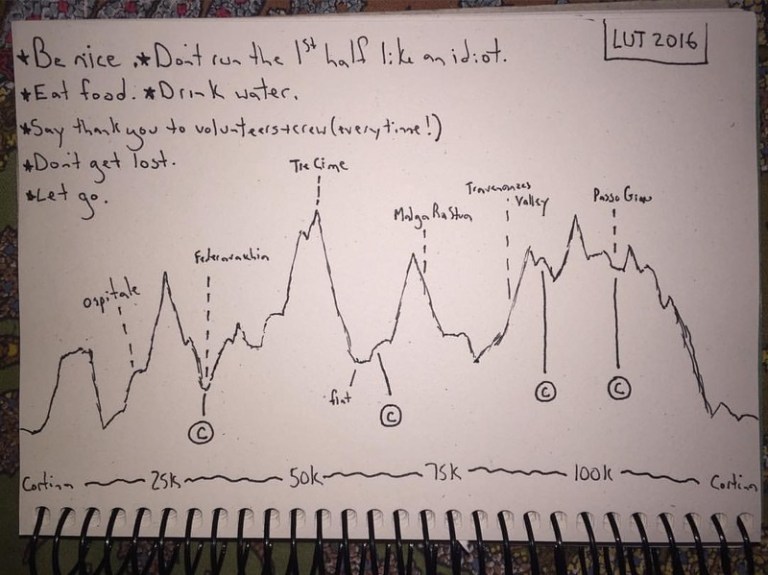 LUT 2016
*Be nice. *Don't run the 1st half like an idiot.
*Eat food. *Drink water.
*Say thank you to volunteers+crew (every time!)
*Don't get lost.
*Let go.
Tre Cime
Travenanzes
Valley
Passo Giau
Malga Ra Stua
Ospitale
flat
C
C
C
C
Cortina 25k 50k 75k 100k Cortina